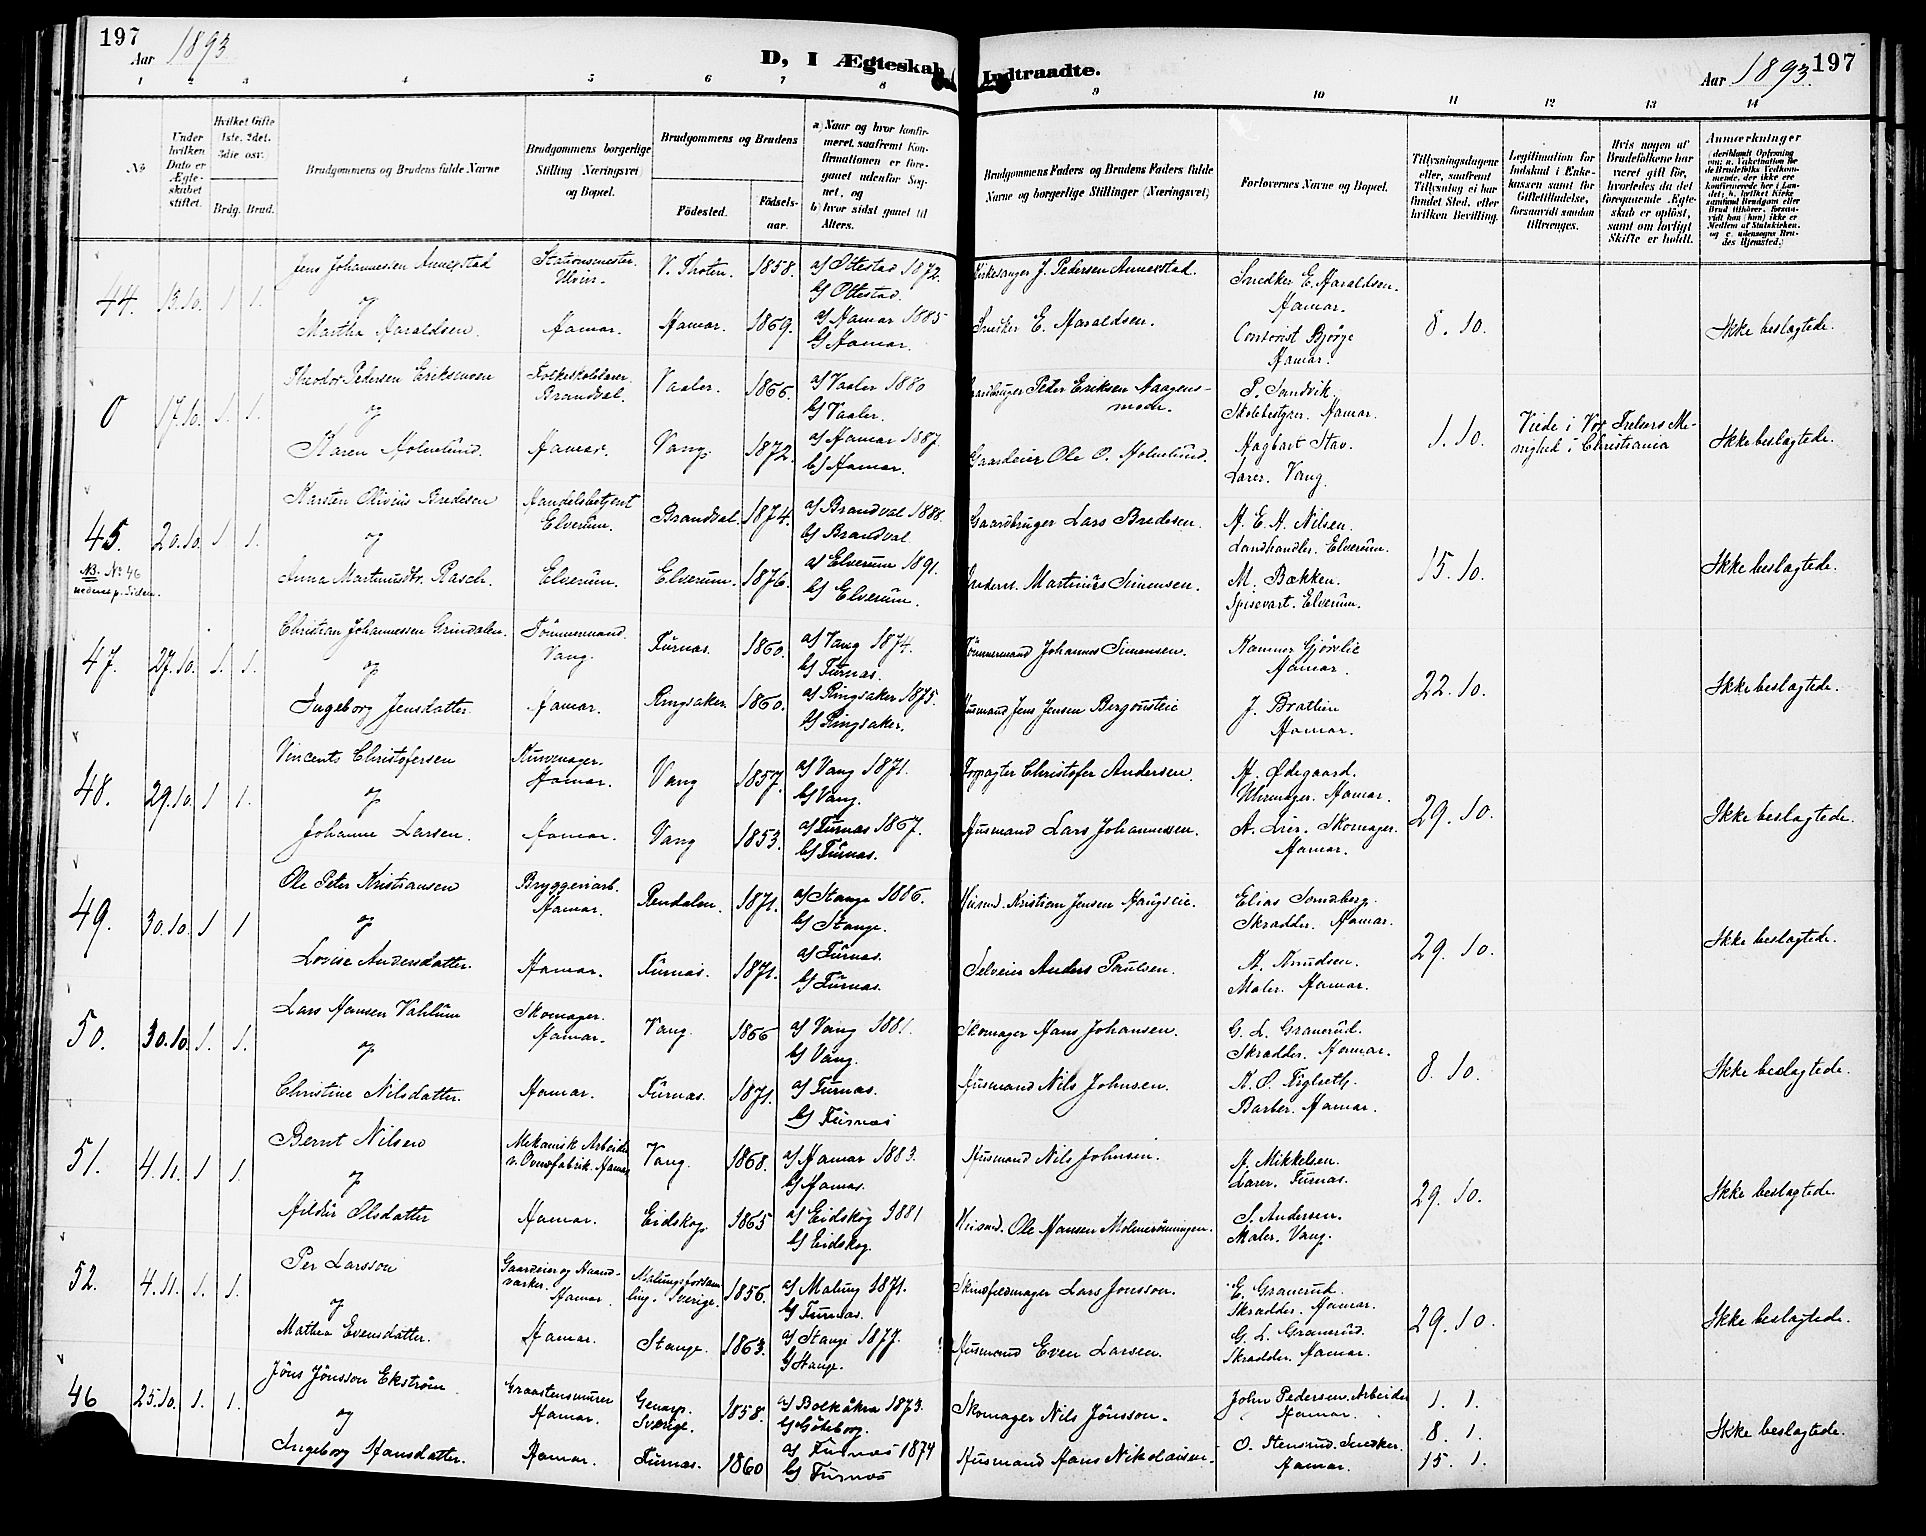 197
Aar 1893
D, I Ægteskab Indtraadte.
Aar 1893. 197
1 2 3 4 5 6 7 8 9 10 11 12 13 14
No
Under hvilken Dato er Ægteskabet stiftet.
Hvilket Gifte 1ste. 2det. 3die osv.
Brdg. Brud.
Brudgommens og Brudens fulde Navne
Brudgommens borgerlige Stilling (Næringsvei) og Bopæl.
Brudgommens og Brudens
Fødested.
Fødselsaar.
a) Naar og hvor konfirmeret, saafremt Konfirmationen er foregaaet udenfor Sognet, og
b) hvor sidst gaaet til Alters.
Brudgommens Faders og Brudens Faders fulde Navne og borgerlige Stillinger (Næringsvei)
Forlovernes Navne og Bopæl.
Tillysningsdagene eller, saafremt Tillysning ei har fundet Sted, efter hvilken Bevilling.
Legitimation for Indskud i Enkekassen samt for Giftetilladelse, forsaavidt saadan tiltrænges.
Hvis nogen af Brudefolkene har været gift før, hvorledes da det foregaaende Ægteskab er opløst, samt om lovligt Skifte er holdt.
Anmærkninger
44. 13.10. 1 1. Jens Johannessen Annerstad Stationsmester. V. Thoten. 1858. a) Ottestad 1872. Kirkesanger J. Pedersen Annerstad. Snedker E. Haraldsen.
og b) Ottestad. Hamar.
Martha Haraldsen. Hamar. Hamar. 1869. a) Hamar 1885 Snedker E. Haraldsen. Contorist Bjørge 8. 10. Ikke beslagtede.
b) Hamar. Hamar.
0 17.10. 1. 1. Theodor Pedersen Folkeskolelærer. Vaaler. 1866. a) Vaaler 1880 Gaardbruger Peter Eriksen P. Sandvik.
og Brandval. b) Vaaler. Skolebestyrer. Hamar.
Karen Holmlund. Hamar. Vang. 1872. a) Hamar 1887. Gaardeier Ole O. Holmlund. Hagbart Stav. 1. 10. Viede i Vor Frelsers Menighed i Christiania Ikke beslagtede.
b) Hamar. Lærer. Vang.
45. 20.10. 1 1. Karsten Olivius Bredesen Handelsbetjent Brandval. 1874. a) Brandval 1888. Gaardbruger Lars Bredesen. H. E. H. Nilsen.
og Elverum. b) Brandval Landhandler. Elverum.
NB. No 46 nederst p. Siden. Anna Martinusdtr. Rasch. Elverum. Elverum. 1876. a) Elverum 1891. Martinus Simensen. M. Bækken. 15. 10. Ikke beslagtede.
b) Elverum. Spisevært. Elverum.
47. 27.10. 1. 1. Christian Johannessen Grindalen. Tømmermand. Furnæs. 1860. a) Vang 1874. Tømmermand Johannes Simensen. Hamar.
og Vang. b) Furnæs.
Ingeborg Jensdatter. Hamar. Ringsaker. 1860. a) Ringsaker 1875. Husmand Jens Jensen J. Bratlien 22. 10. Ikke beslagtede.
b) Ringsaker. Hamar.
48. 29.10. 1 1. Vincents Christofersen Kurvemager. Vang 1857. a) Vang 1871. Forpagter Christofer Andersen. H. Ødegaard.
og Hamar. b) Vang. Uhrmager. Hamar.
Johanne Larsen. Hamar. Vang 1853. a) Furnæs 1867. Husmand Lars Johannessen. A. Lier. Skomager. 29. 10. Ikke beslagtede.
b) Furnæs. Hamar.
49. 30.10. 1 1 Ole Peter Kristiansen Bryggeriarb. Rendalen. 1871. a) Stange 1886. Husmd. Kristian Jensen Haugseie. Elias
og Hamar. b) Stange. Skrædder. Hamar.
Lovise Andersdatter. Hamar. Furnæs. 1871. a) Furnæs. Selveier Anders Paulsen. A. Knudsen. 29. 10. Ikke beslagtede.
b) Furnæs. Maler. Hamar.
50. 30.10. 1. 1. Lars Hansen Vahlum Skomager. Vang. 1866 a) Vang 1881. Skomager Hans Johansen. G. L. Granerud.
og Hamar. b) Vang. Skrædder. Hamar.
Christine Nilsdatter. Hamar. Furnæs. 1871. a) Furnæs. Husmand Nils Johnsen. 8. 10. Ikke beslagtede.
b) Furnæs Barber. Hamar.
51. 4.11. 1 1. Bernt Nilsen Mekanisk Arbeider v. Ovnsfabrik. Hamar Vang. 1868. a) Hamar 1883. Husmand Nils Johnsen. H. Mikkelsen.
og b) Hamar. Lærer. Furnæs.
Hilda Olsdatter Hamar. Eidskog. 1865 a) Eidskog 1881 Husmd. Ole Hansen S. Andersen. 29. 10. Ikke beslagtede.
b) Eidskog. Maler. Vang.
52. 4.11. 1. 1. Per Larsson Gaardeier og Haandværker. Malungsforsamling. Sverige. 1856. a) Malung 1871. Skindfeldmager Lars Jonsson. E. Granerud.
og Hamar. b) Furnæs. Skrædder. Hamar.
Mathea Evensdatter. Hamar. Stange. 1863. a) Stange 1877. Husmand Even Larsen. G. L. Granerud. 29. 10. Ikke beslagtede.
b) Stange. Skrædder. Hamar.
46 25.10. 1. 1. Jöns Jönsson Ekström Graastensmurer Genarp. 1858. a) Bolkåkra 1873. Skomager Nils Jönsson. John Pedersen. Arbeider 1. 1.
og Hamar. Sverige. b) Göteborg. Hamar. 8. 1. Ikke beslagtede.
Ingeborg Hansdatter. Hamar. Furnæs. 1860 a) Furnæs 1874 Husmand Hans Nikolaisen O. Stensrud. Snedker. 15. 1.
b) Furnæs Hamar.